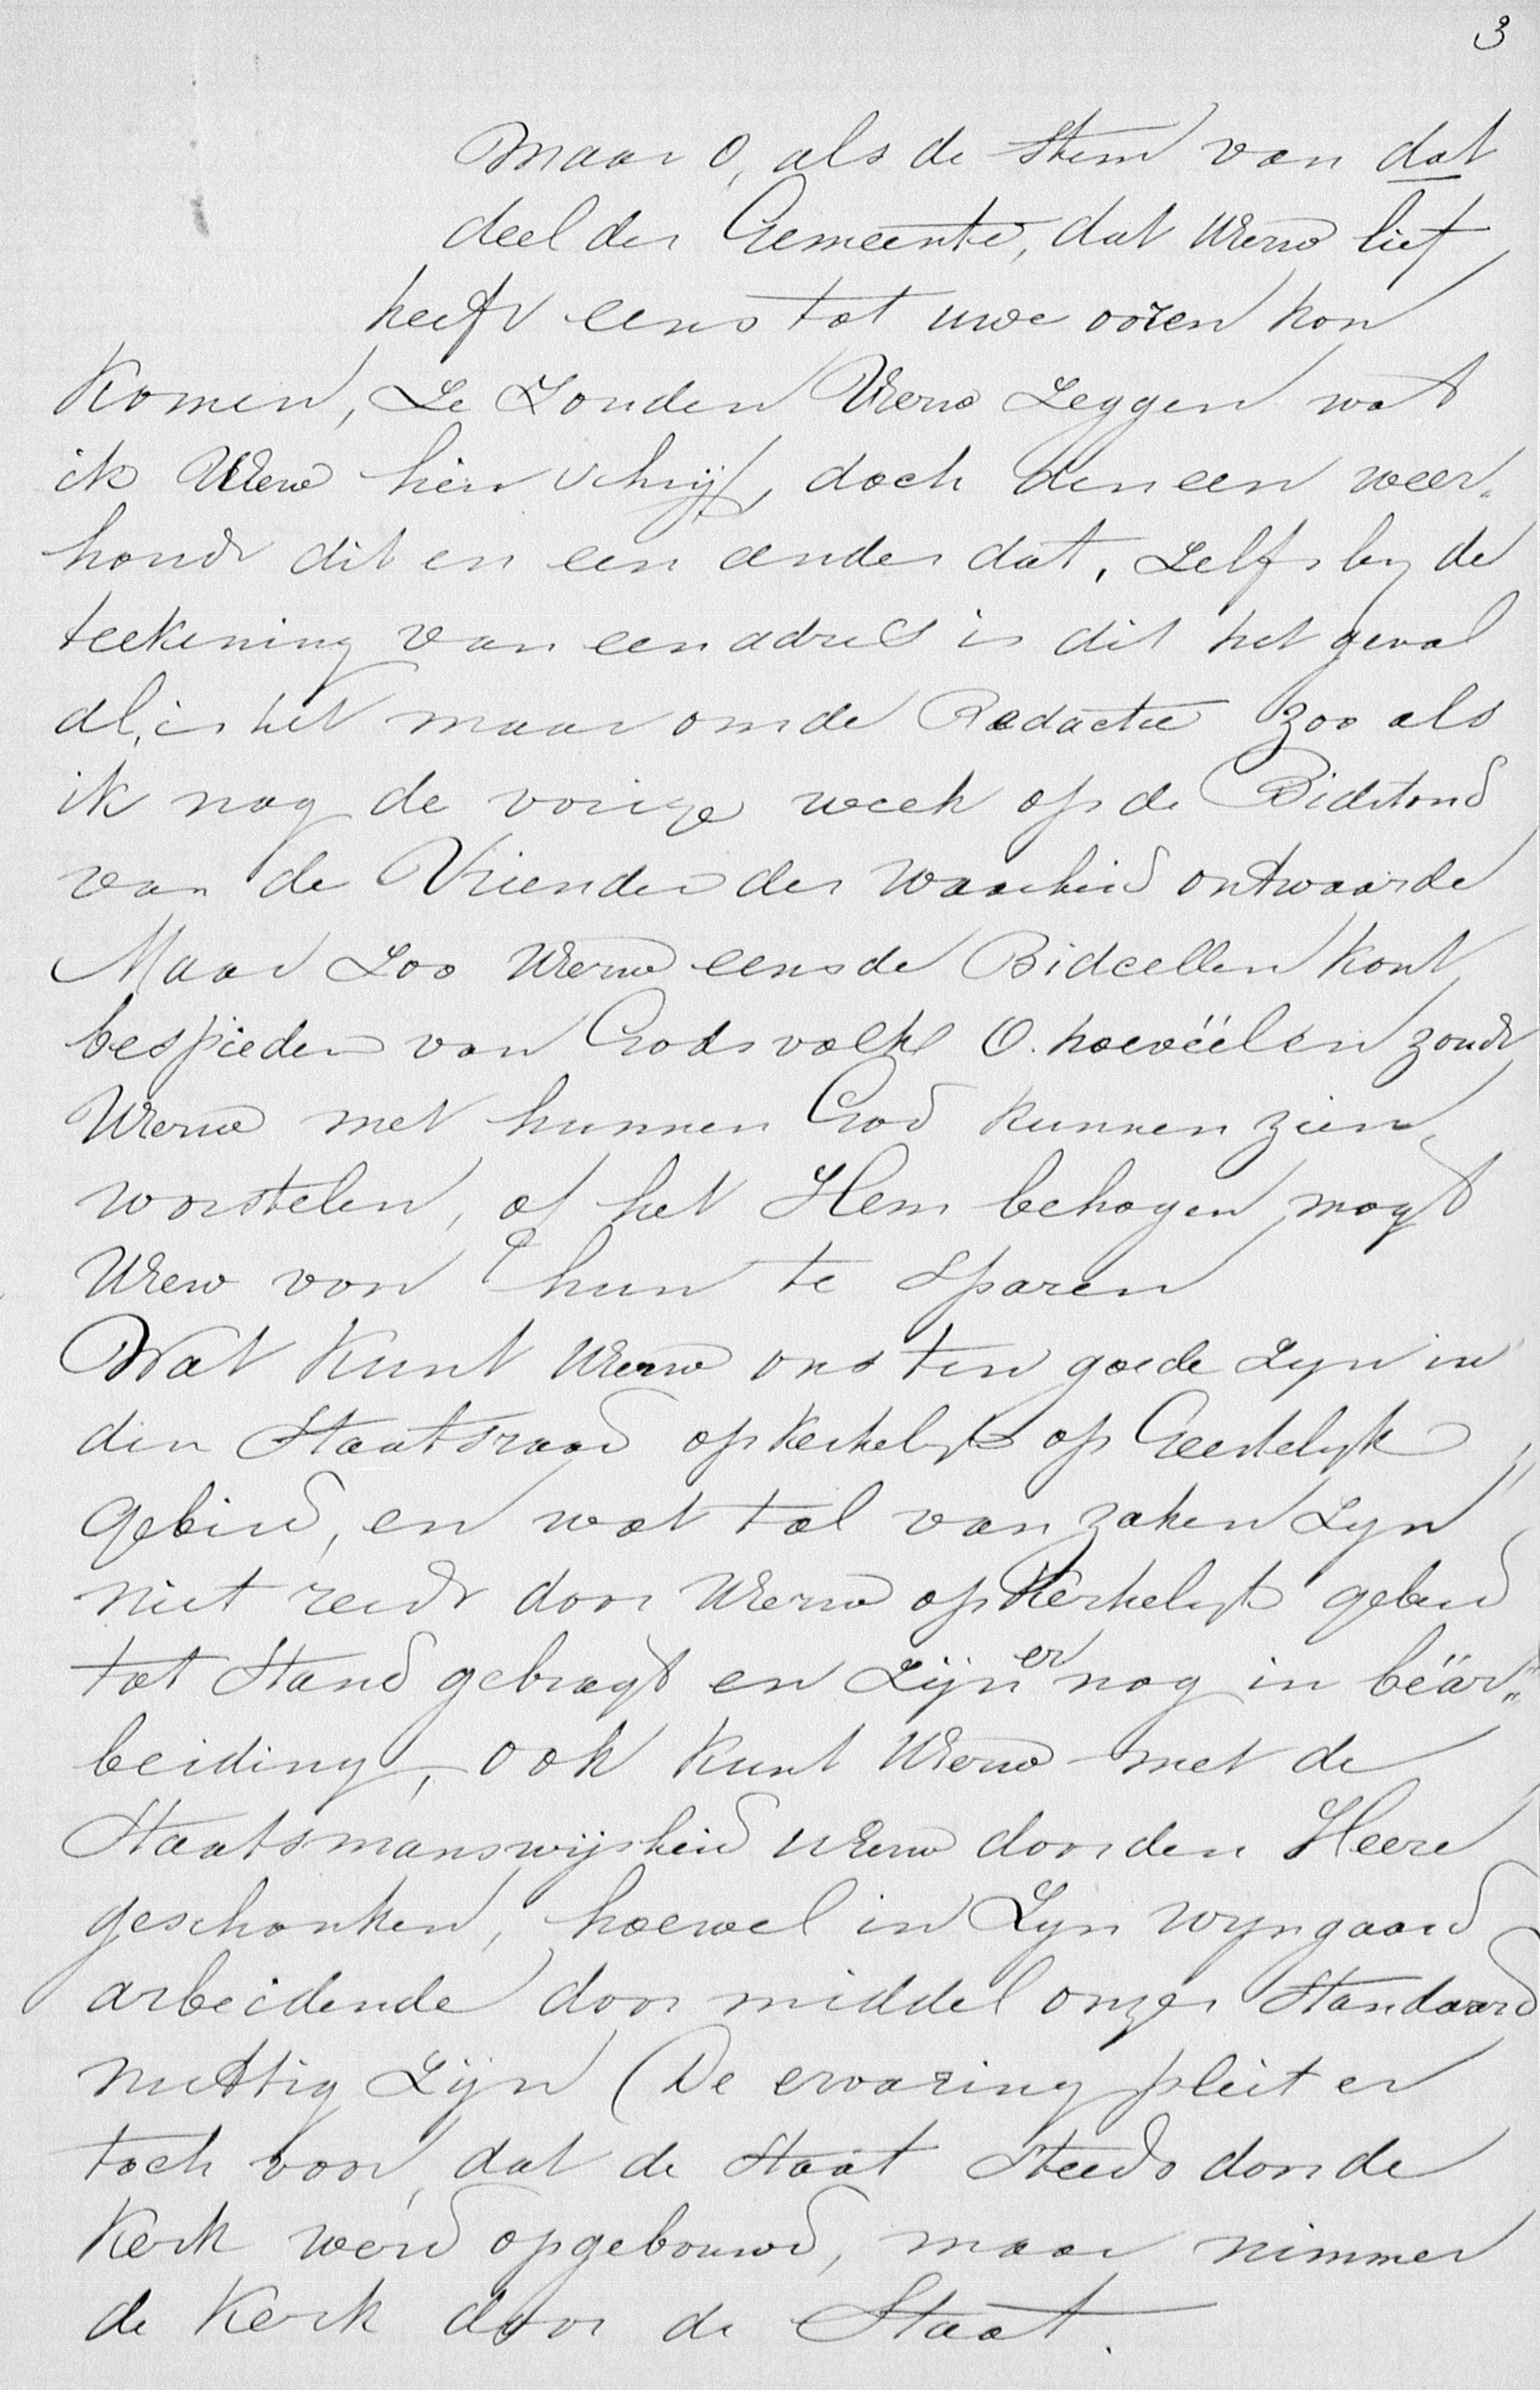 3
Maar O, als de stem van dat
deel der Gemeente, dat UEerw lief
heeft eens tot uwe ooren kon
Komen, Ze Zouden UEerw Zeggen wat
ik UEerw hier schrijf, doch den een weer„
houdt dit en een ander dat, Zelfs by de
teekening van een adres is dit het geval
al is het maar om de Redactie zoo als
ik nog de vorige week op de Bidstond
van de Vrienden der waarheid ontwaarde
Maar Zoo UEerw eens de Bidcellen kont
bespieden van Gods volk O. hoevëelen zoudt
UEerw met hunnen God kunnen zien
worstelen, of het Hem behagen mogt
UEerw voor hun te Sparen
Wat Kunt UEerw ons ten goede Zyn in
den Staatsraad op Kerkelyk op Geestelyk
gebied, en wat tal van zaken Zyn
niet reeds door UEerw op Kerkelyk gebied
tot Stand gebragt en Zijn er nog in bëar„
beiding, ook Kunt UEerw met de
Staatsmanswijsheid UEerw door den Heere
geschonken, hoewel in Zyn wyngaard
arbeidende door middel onzer Standaard
nuttig Zijn (De ervaring pleit er
toch voor, dat de Staat Steeds door de
Kerk werd opgebouwd, maar nimmer
de Kerk door de Staat.